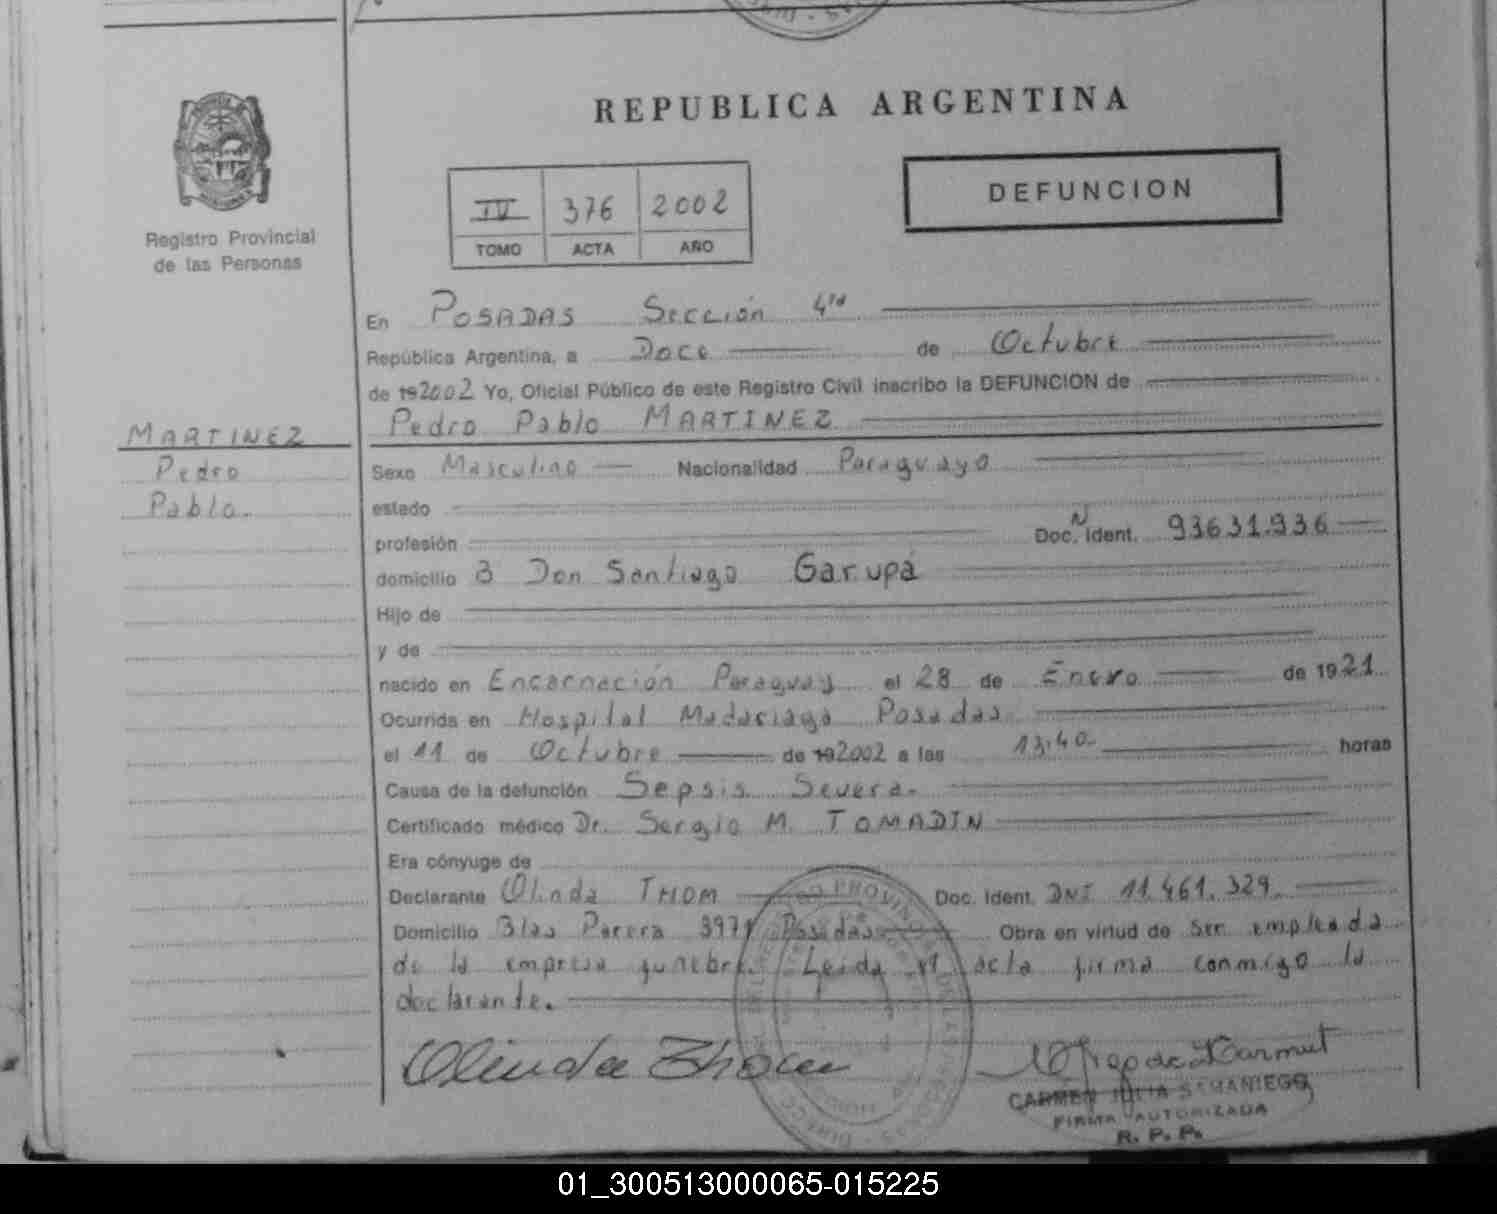 REPUBLICA ARGENTINA
Registro Provincial
de las Personas
IV 376 2002
TOMO ACTA AÑO
DEFUNCION
En POSADAS Sección 4ta
República Argentina, a Doce de Octubre
de 192002 Yo, Oficial Público de este Registro Civil inscribo la DEFUNCION de
Pedro Pablo MARTINEZ
MARTINEZ
Pedro
Pablo
Sexo Masculino Nacionalidad Paraguayo
estado
profesión Doc. N Ident. 93631.936
domicilio B Don Santiago Garupá
Hijo de
y de
nacido en Encarnación Paraguay el 28 de Enero de 1921
Ocurrida en Hospital Madariaga Posadas
el 11 de Octubre de 192002 a las 13.40 horas
Causa de la defunción Sepsis Severa.
Certificado médico Dr. Sergio M. TOMADIN
Era cónyuge de
Declarante Olinda THOM Doc. Ident. DNI 11.461.329.
Domicilio Blas Parera 3971 Posadas Obra en virtud de ser empleada
de la empresa funebre. Leida el acta firma conmigo la
declarante.
Olinda Thom
CARMEN JULIA SAMANIEGO
FIRMA AUTORIZADA
R. P. P.
01_300513000065-015225